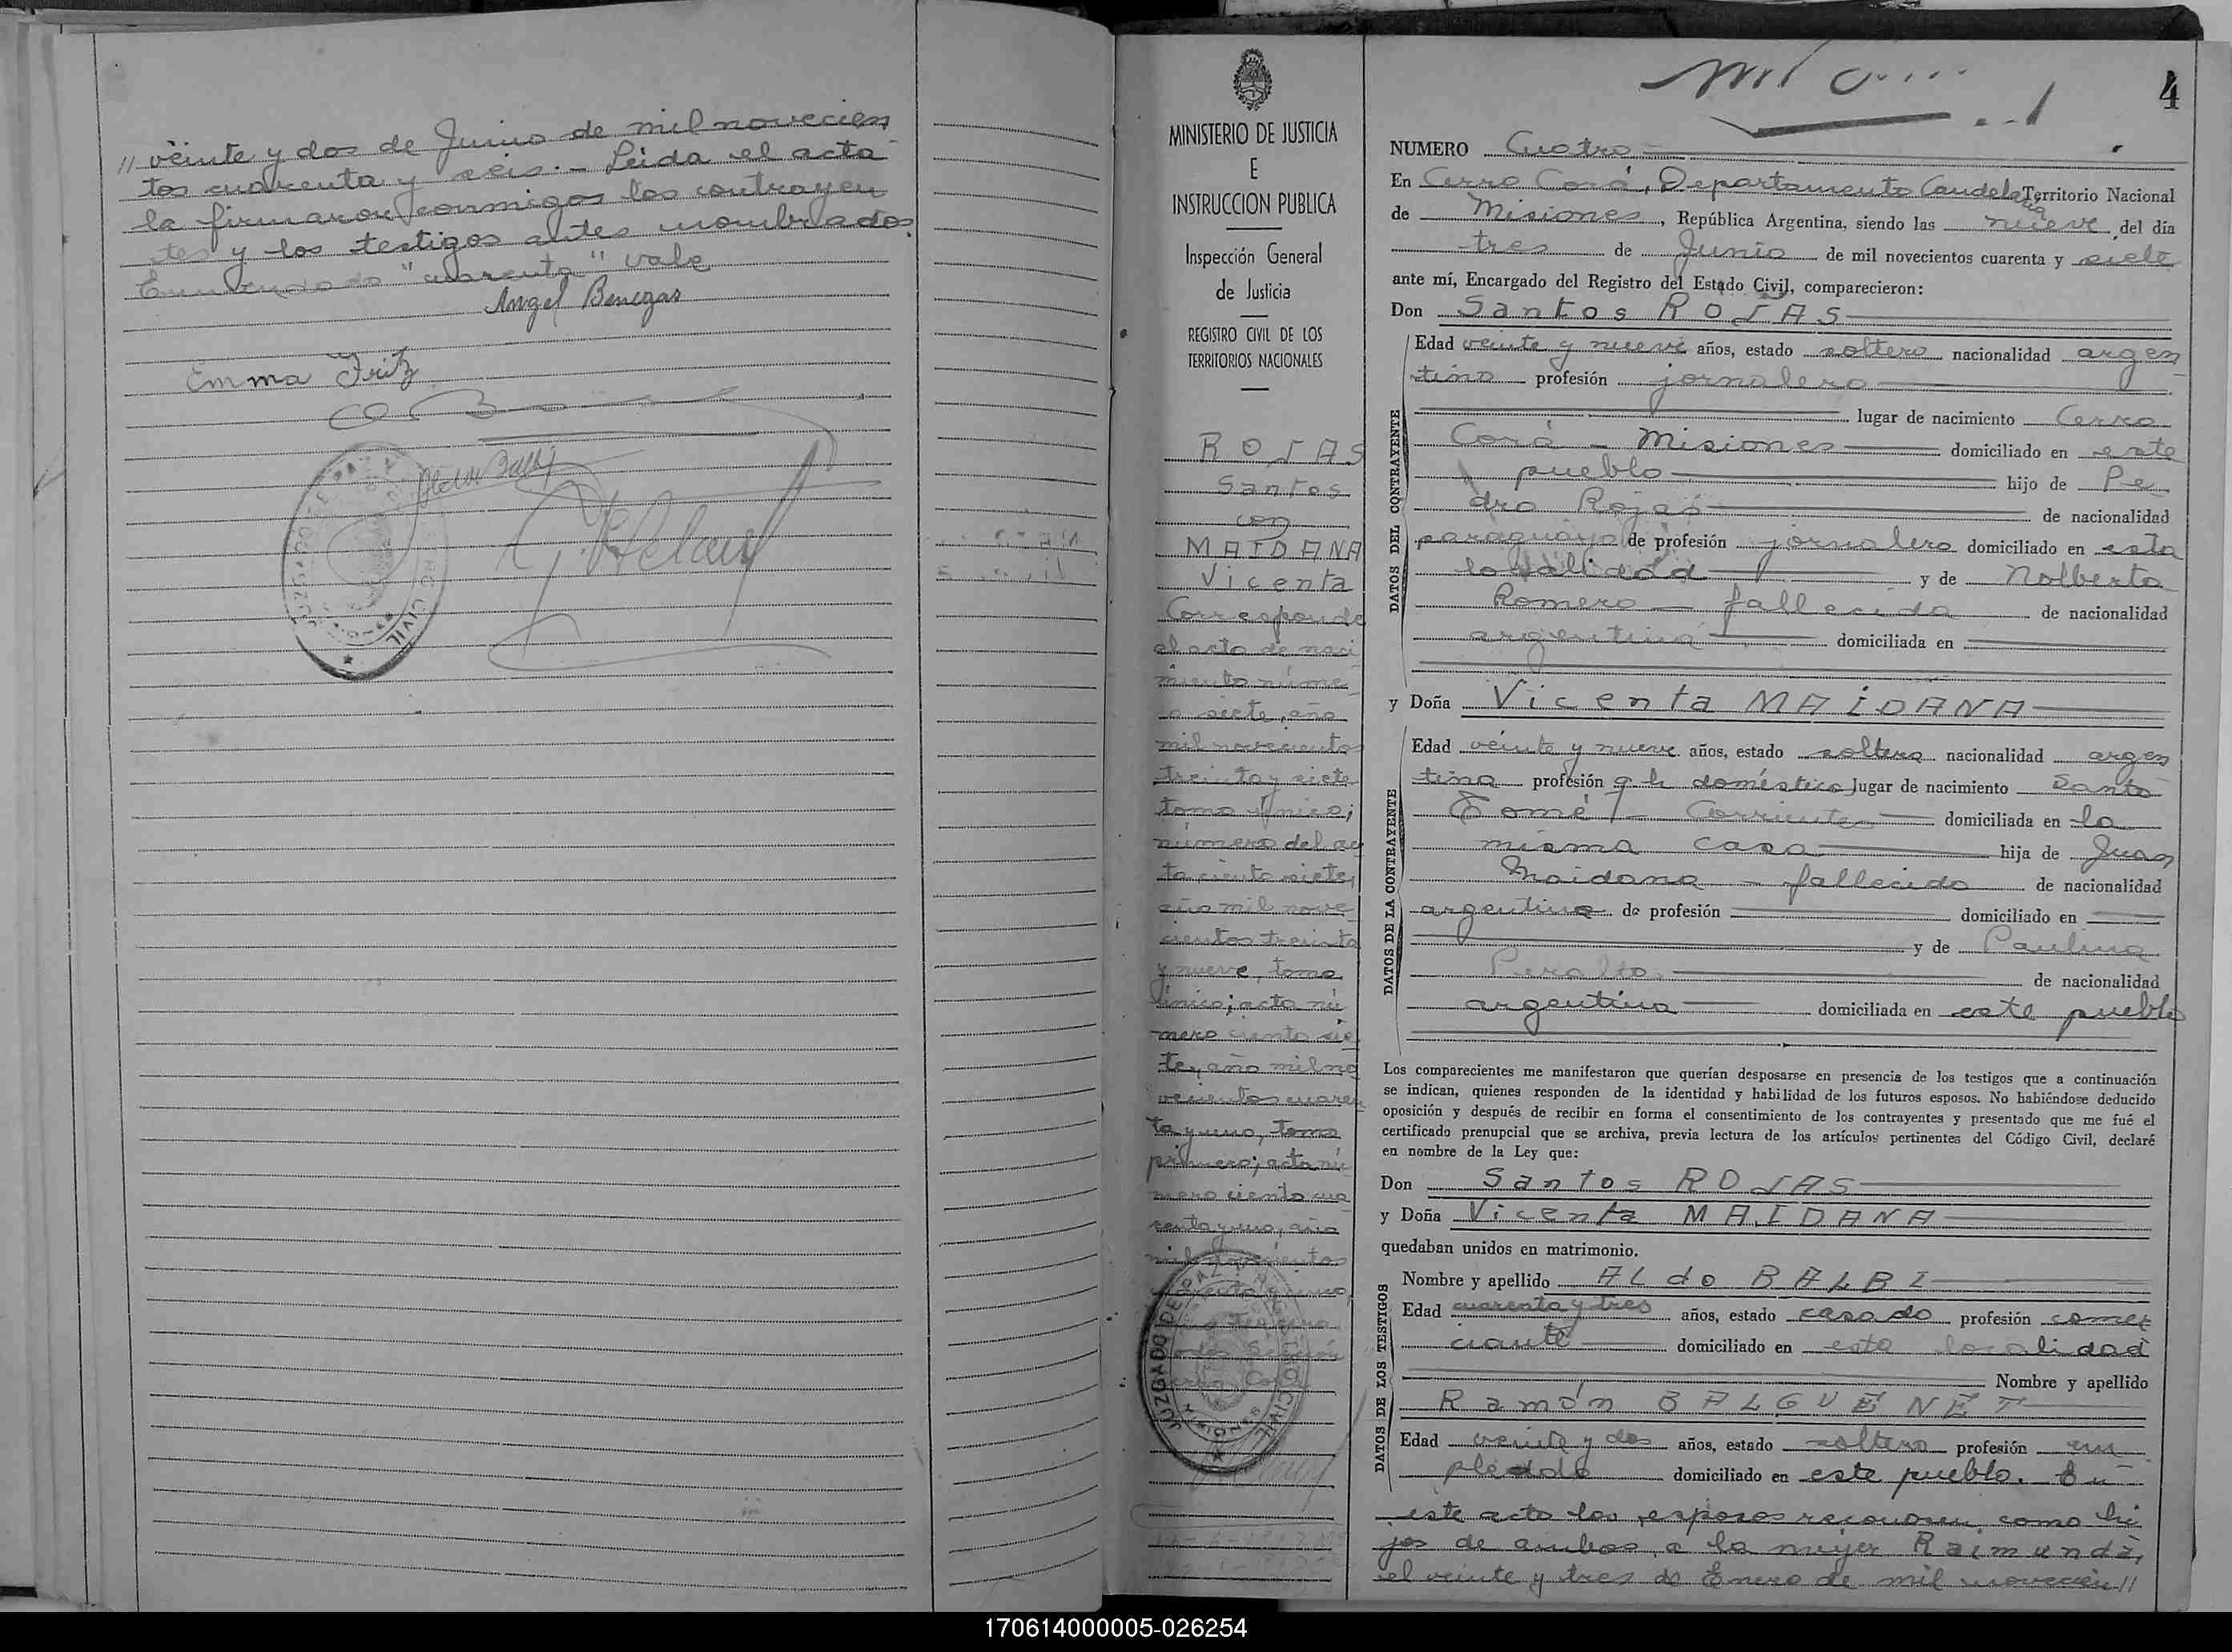 // veinte y dos de Junio de mil novecien
tos cuarenta y seis.- Leida el acta
la firmaron conmigos los contrayen
tes y los testigos antes nombrados.
Enmendado "cuarenta" vale
Angel Benegas
Emma Fritz
Aldo Balbi
CIVIL
4
MINISTERIO DE JUSTICIA
E
INSTRUCCION PUBLICA
Inspección General
de Justicia
REGISTRO CIVIL DE LOS
TERRITORIOS NACIONALES
ROJAS
Santos
con
MAIDANA
Vicenta
Corresponde
el acta de naci
miento núme
ro siete, año
mil novecientos
treinta y siete
tomo único;
número del ac
ta ciento siete,
año mil nove
cientos treinta
y nueve, tomo
único; acta nú
mero ciento sie
te, año mil no
vecientos cuaren
ta y uno, tomo
primero; acta nú
mero ciento cua
renta y uno, año
mil novecientos
JUZGADO DE PAZ
CIVIL
MISIONES
NUMERO Cuatro
En Cerro Corá, Departamento Candelaria Territorio Nacional
de Misiones, República Argentina, siendo las nueve del día
tres de Junio de mil novecientos cuarenta y siete
ante mí, Encargado del Registro del Estado Civil, comparecieron:
Don Santos ROJAS
DATOS DEL CONTRAYENTE
Edad veinte y nueve años, estado soltero nacionalidad argen
tino profesión jornalero
lugar de nacimiento Cerro
Corá - Misiones domiciliado en este
pueblo hijo de Pe
dro Rojas de nacionalidad
paraguayo de profesión jornalero domiciliado en esta
localidad y de Nolberta
Romero - fallecida de nacionalidad
argentina domiciliada en
y Doña Vicenta MAIDANA
DATOS DE LA CONTRAYENTE
Edad veinte y nueve años, estado soltera nacionalidad argen
tina profesión q h domésticos lugar de nacimiento Santo
Tomé - Corrientes domiciliada en la
misma casa hija de Juan
Maidana - fallecido de nacionalidad
argentino de profesión domiciliado en
y de Paulina
Peralta de nacionalidad
argentina domiciliada en este pueblo
Los comparecientes me manifestaron que querían desposarse en presencia de los testigos que a continuación
se indican, quienes responden de la identidad y habilidad de los futuros esposos. No habiéndose deducido
oposición y después de recibir en forma el consentimiento de los contrayentes y presentado que me fué el
certificado prenupcial que se archiva, previa lectura de los artículos pertinentes del Código Civil, declaré
en nombre de la Ley que:
Don Santos ROJAS
y Doña Vicenta MAIDANA
quedaban unidos en matrimonio.
DATOS DE LOS TESTIGOS
Nombre y apellido ALdo BALBI
Edad cuarenta y tres años, estado casado profesión comer
ciante domiciliado en esta localidad
Nombre y apellido
Ramón BALGUENET
Edad veinte y dos años, estado soltero profesión em
pleado domiciliado en este pueblo. En
este acto los esposos reconosen como hi
jos de ambos a la mujer Raimunda,
el veinte y tres de Enero de mil novecien//
170614000005-026254